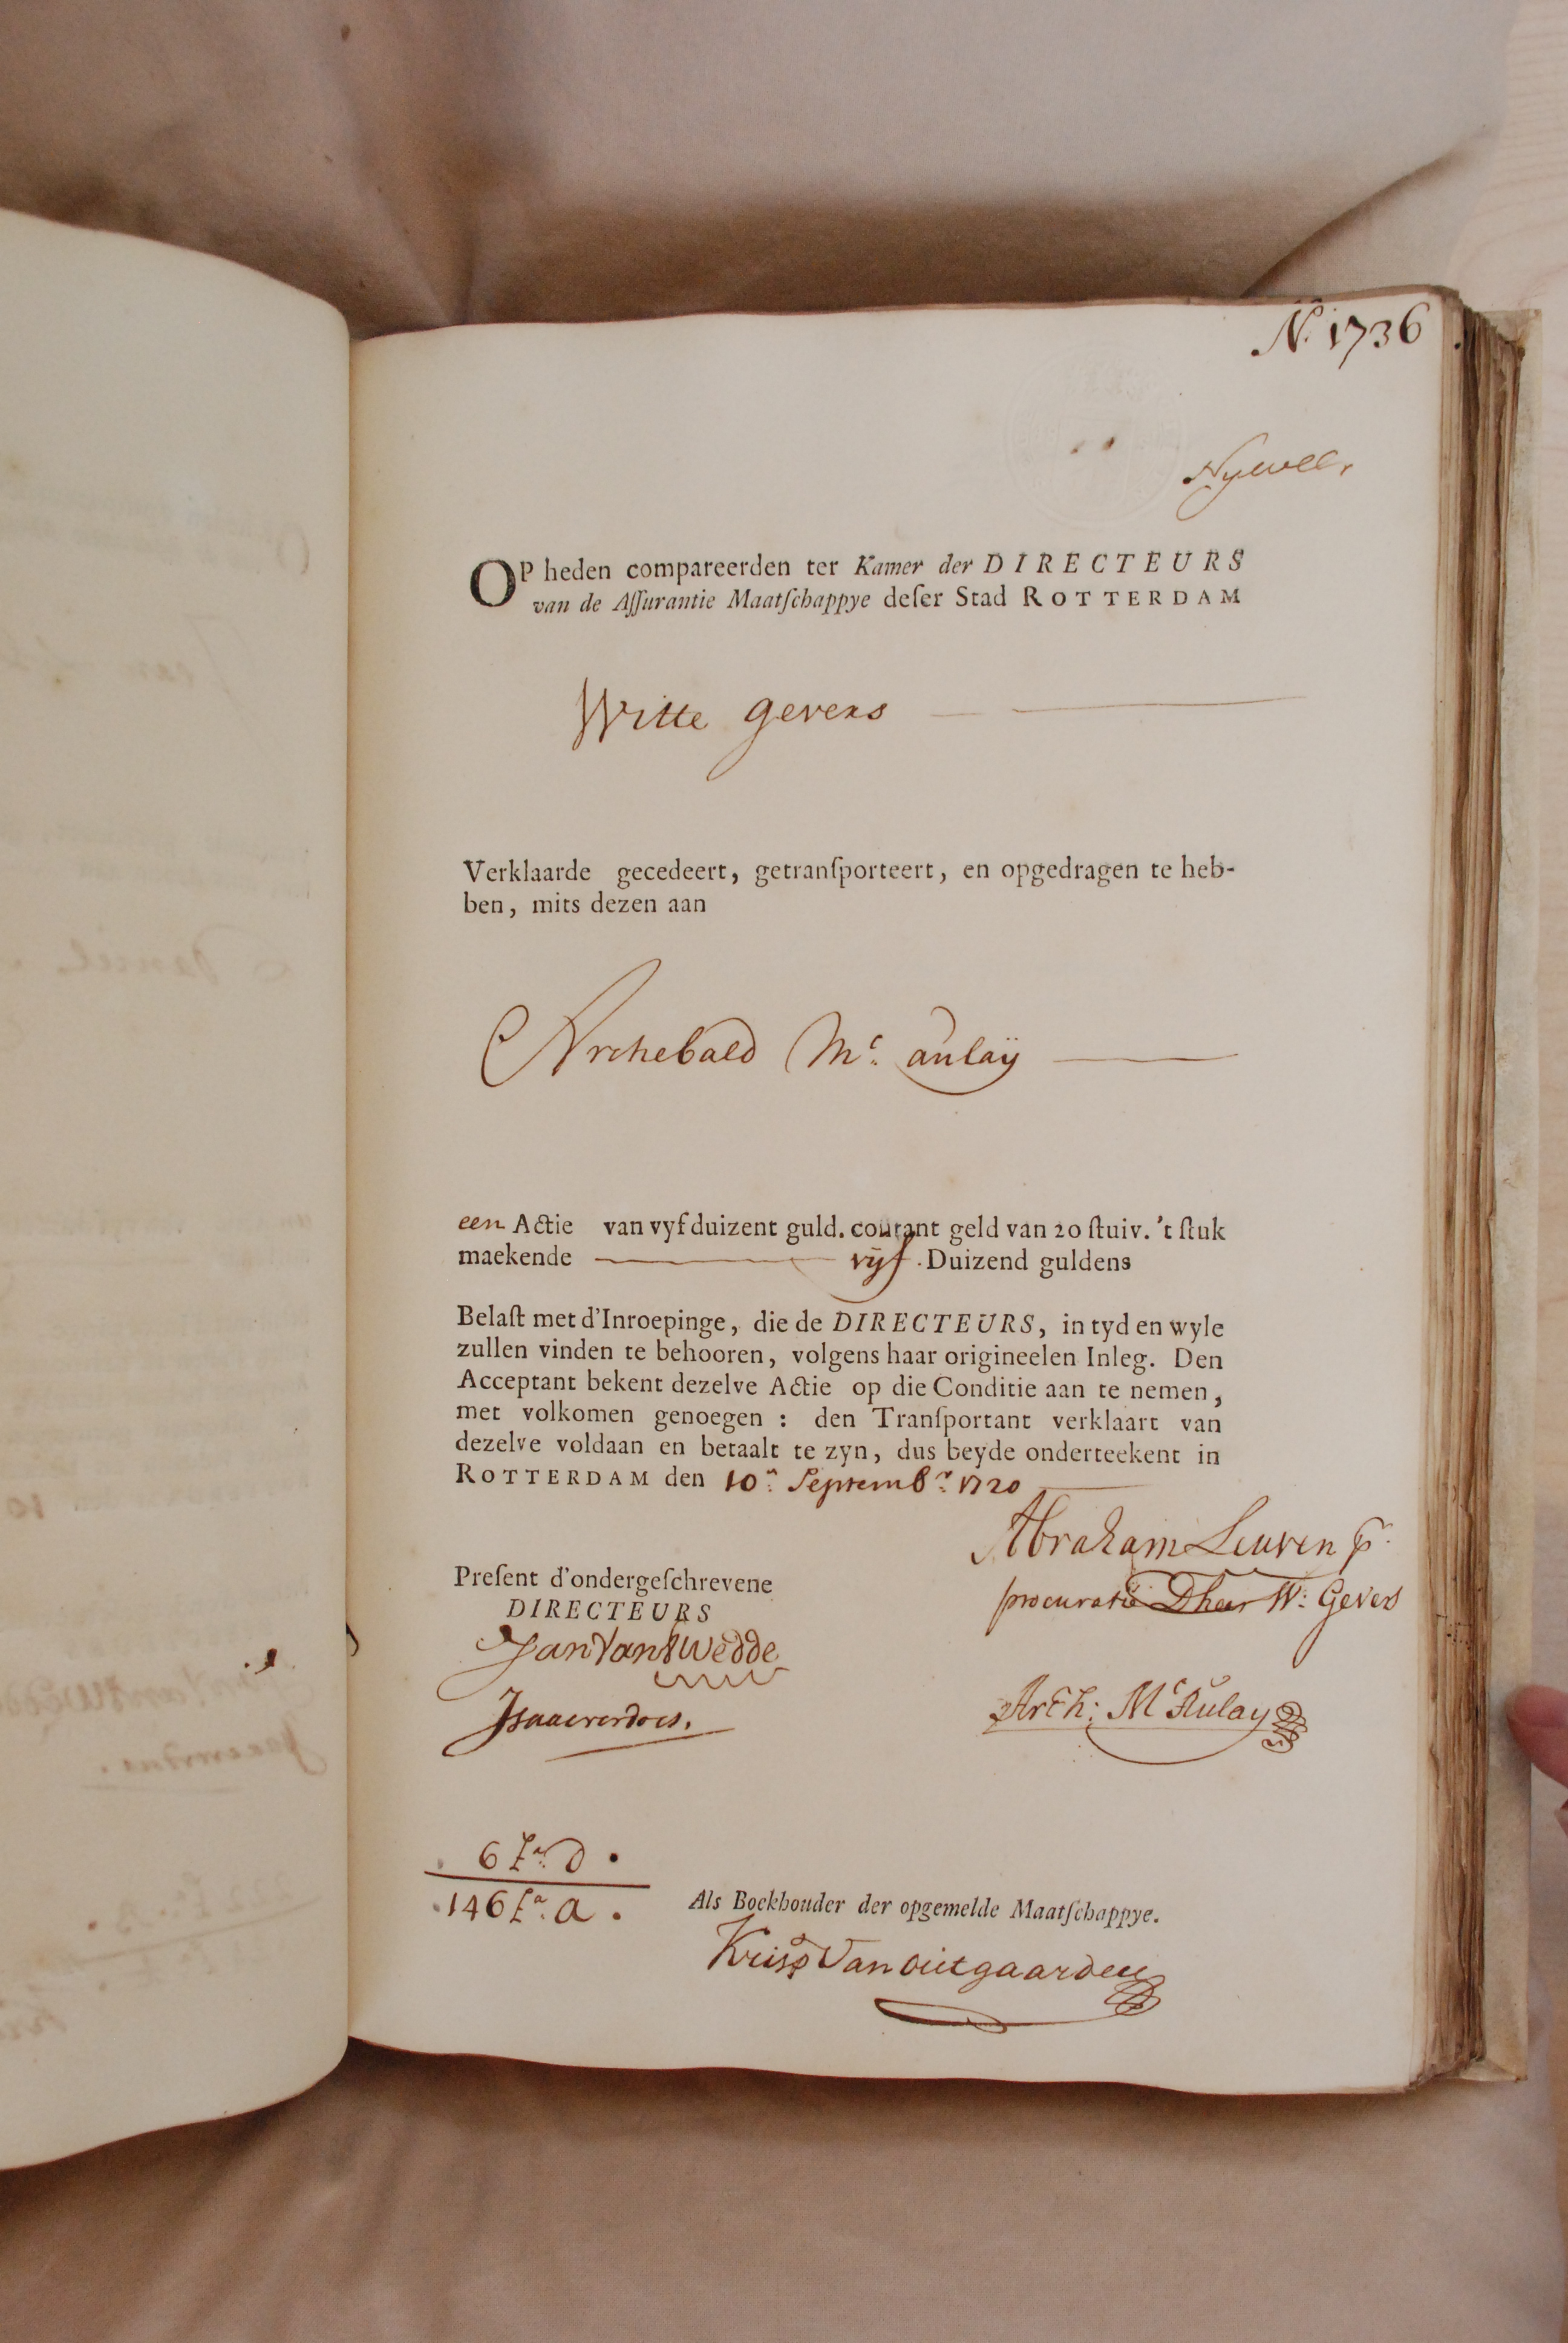 N. 1736
Nywell,
OP heden compareerden ter Kamer der DIRECTEURS
van de Aſſurantie Maatſchappye deſer Stad ROTTERDAM
Witte Gevers
Verklaarde gecedeert, getranſporteert, en opgedragen te heb-
ben, mits dezen aan
Archebald Mc. aulaÿ
een Actie van vyf duizent guld. courant geld van 20 ſtuiv. 't ſtuk
maekende vijf. Duizend guldens
Belaſt met d'Inroepinge, die de DIRECTEURS, in tyd en wyle
zullen vinden te behooren, volgens haar origineelen Inleg. Den
Acceptant bekent dezelve Actie op die Conditie aan te nemen,
met volkomen genoegen : den Tranſportant verklaart van
dezelve voldaan en betaalt te zyn, dus beyde onderteekent in
ROTTERDAM den 10n. Septembr. 1720
Abraham Leuven pr.
procuratie Dheer W: Gevers
Preſent d'ondergeſchrevene
DIRECTEURS
Jan Vant Wedde
Isaac verdoes.
Arch: Mc Aulay
6 d.
146 a.
Als Boekhouder der opgemelde Maatſchappye.
Kriſp Van Outgaarden